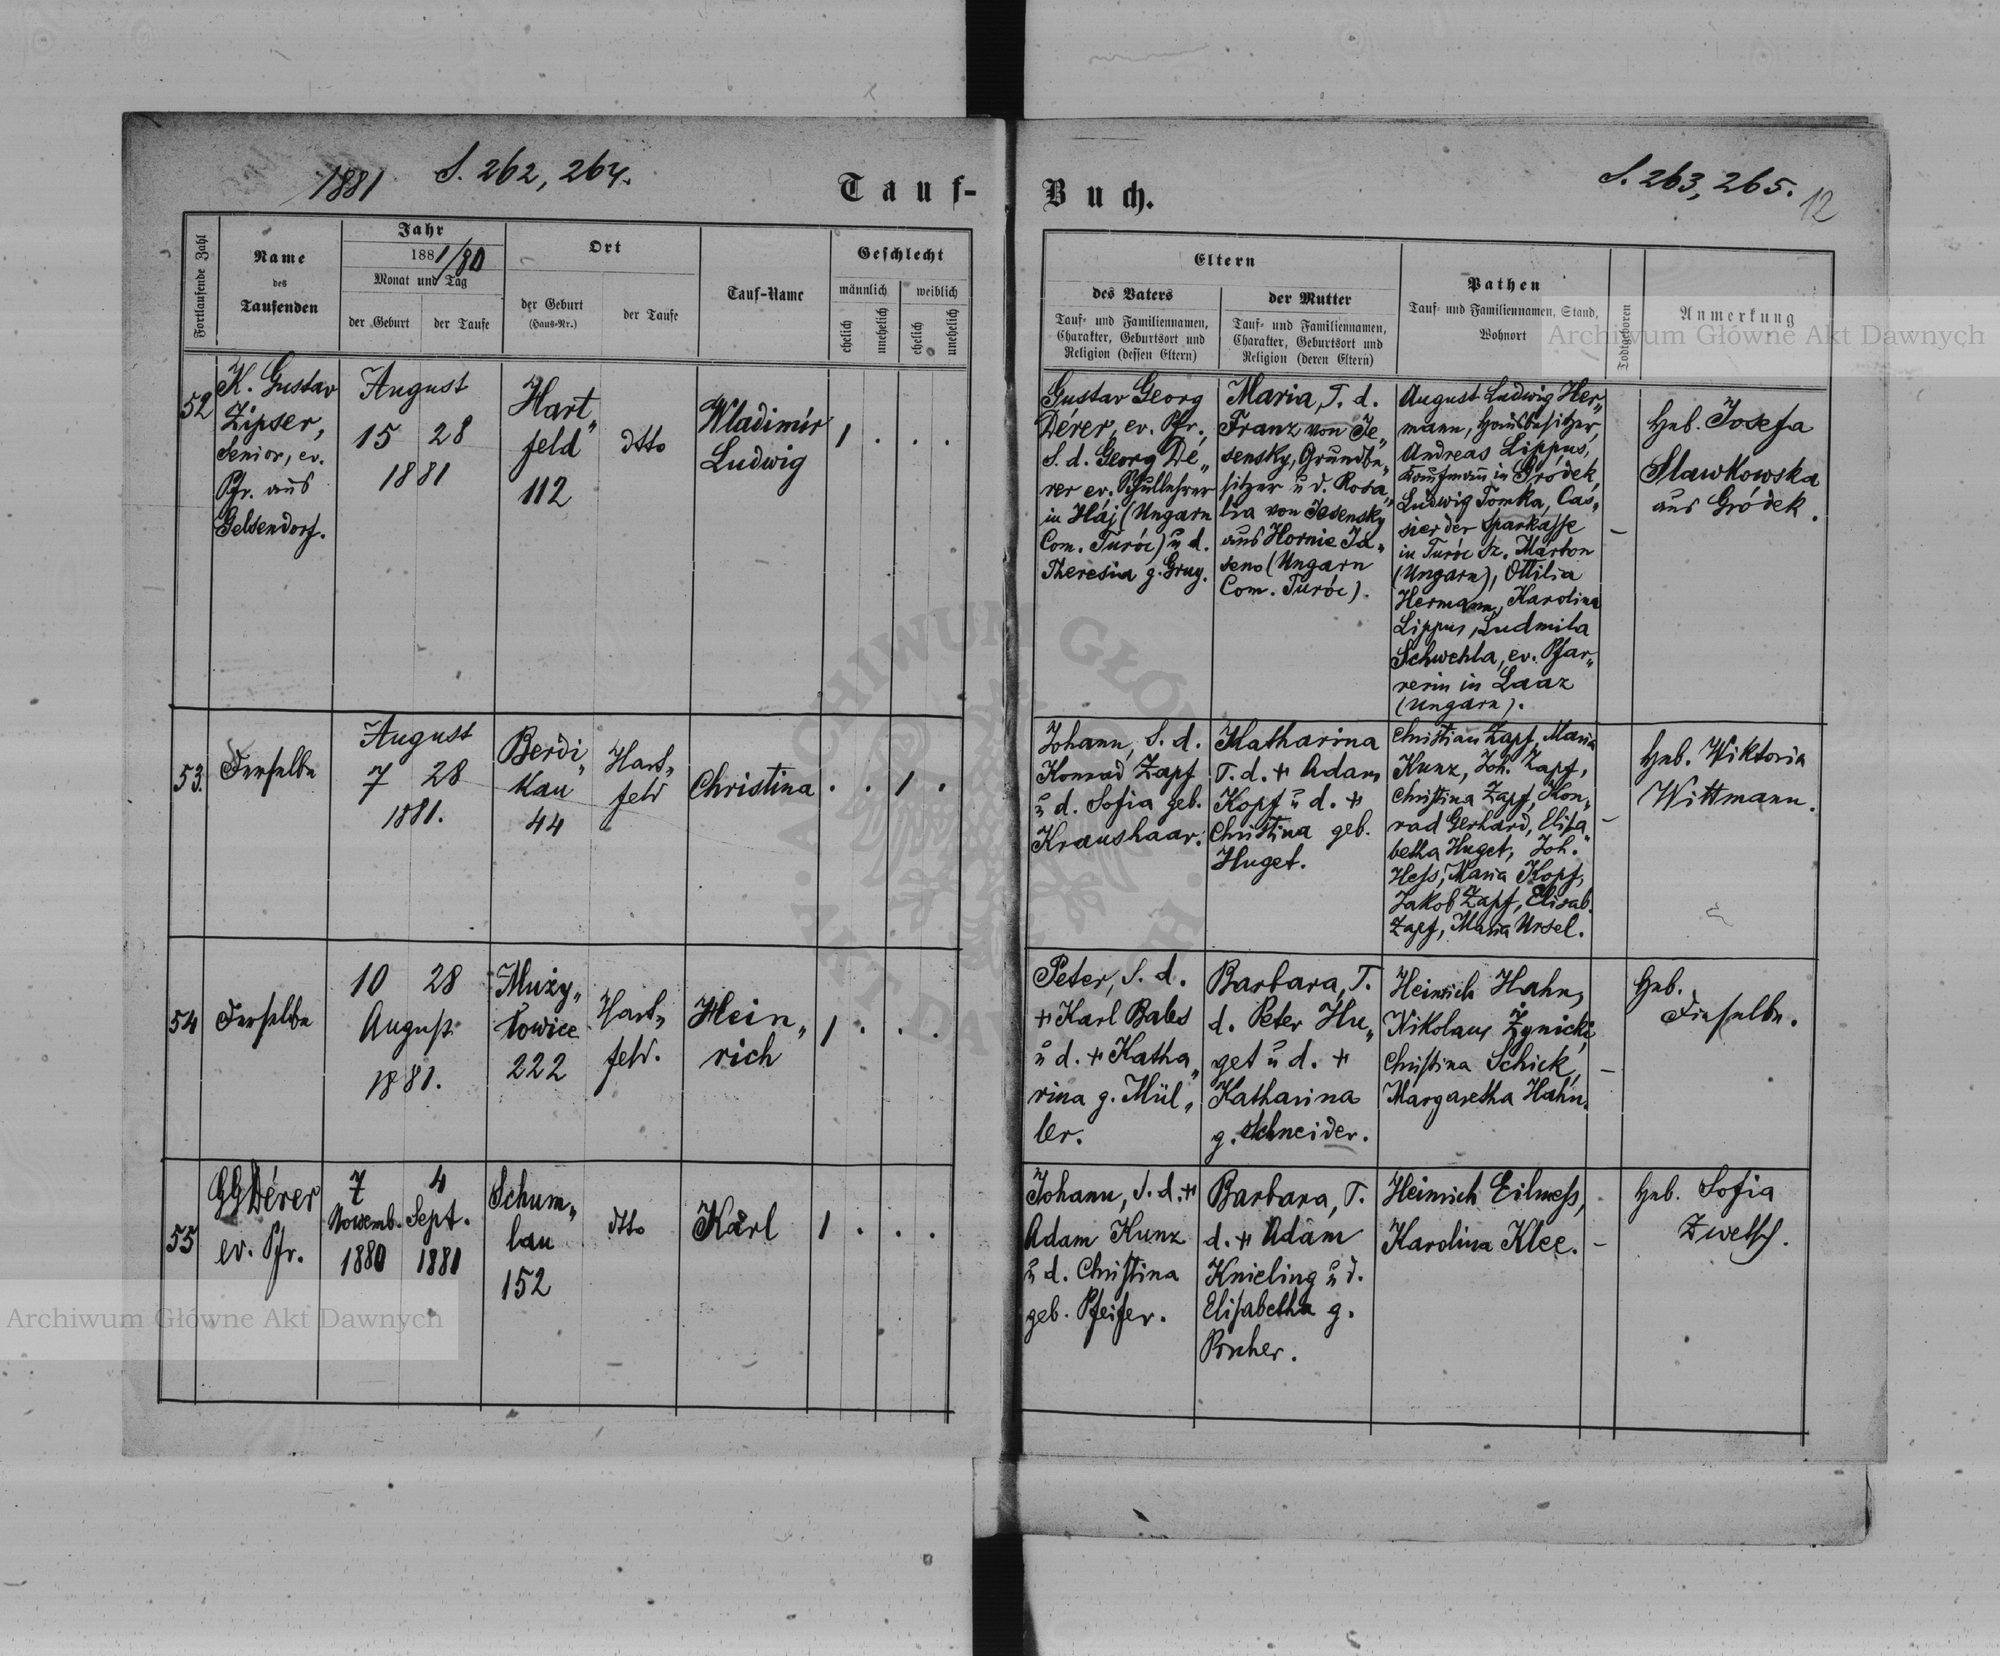 1881
S. 262, 264.
Tauf-
Buch.
S. 263, 265.
12
Fortlaufende Zahl
Name
des
Taufenden
Jahr
1881/80
Monat und Tag
der Geburt
der Taufe
Ort
der Geburt
(Haus-Nr.)
der Taufe
Tauf-Name
Geschlecht
männlich
weiblich
ehelich
unehelich
ehelich
unehelich
Eltern
des Vaters
Tauf- und Familiennamen,
Charakter, Geburtsort und
Religion (dessen Eltern)
der Mutter
Tauf- und Familiennamen,
Charakter, Geburtsort und
Religion (deren Eltern)
Pathen
Tauf- und Familiennamen, Stand,
Wohnort
Todtgeboren
Anmerkung
52
K. Gustav
Zipser,
Senior, ev.
Pfr. aus
Gelsendorf.
August
15 28
1881
Hart„
feld
112
dtto
Wladimir
Ludwig
1 . . .
Gustav Georg
Dérer, ev. Pfr.,
S. d. Georg Dé„
rer ev. Schullehrer
in Háj (Ungarn
Com. Turóc) u d.
Theresia g. Gruy.
Maria, T. d.
Franz von Je„
sensky, Grundbe„
sitzer u d. Rosa„
lia von Jesensky
aus Hornie Ja„
seno (Ungarn
Com. Turóc).
August Ludwig Her„
mann, Hausbesitzer,
Andreas Lippus,
Kaufmann in Gródek,
Ludwig Tomka, Cas„
sier der Sparkasse
in Turóc Sz. Marton
(Ungarn), Ottilia
Hermann, Karolina
Lippus, Ludmila
Schwehla, ev. Pfar„
rerin in Laaz
(Ungarn).
–
Heb. Josefa
Slawkowska
aus Gródek.
53.
Derselbe
August
7 28
1881.
Berdi„
kau
44
Hart„
feld
Christina
. . 1 .
Johann, S. d.
Konrad Zapf
u d. Sofia geb.
Kraushaar.
Katharina
T. d. + Adam
Kopf u d. +
Christina geb.
Huget.
Christian Zapf, Maria
Kunz, Joh. Zapf,
Christina Zapf, Kon„
rad Gerhard, Elisa„
betha Huget, Joh.
Hess, Maria Kopf,
Jakob Zapf, Elisab.
Zapf, Maria Ursel.
–
Heb. Wiktoria
Wittmann.
54
Derselbe
10 28
August
1881.
Muży„
łowice
222
Hart„
feld.
Hein„
rich
1 . . .
Peter, S. d.
+ Karl Bales
u d. + Katha„
rina g. Mül„
ler.
Barbara, T.
d. Peter Hu„
get u d. +
Katharina
g. Schneider.
Heinrich Hahn,
Nikolaus Zynicki,
Christina Schick,
Margaretha Hahn.
–
Heb.
Dieselbe.
55
GGDérer
ev. Pfr.
7 4
Novemb. Sept.
1880 1881
Schum„
lau
152
dtto
Karl
1 . . .
Johann, S. d. +
Adam Kunz
u d. Christina
geb. Pfeifer.
Barbara, T.
d. + Adam
Knieling u d.
Elisabetha g.
Heinrich Eilmess,
Karolina Klee.
–
Heb. Sofia
Zwetsch.
Archiwum Główne Akt Dawnych
Archiwum Główne Akt Dawnych
ARCHIWUM GŁÓWNE AKT DAWNYCH